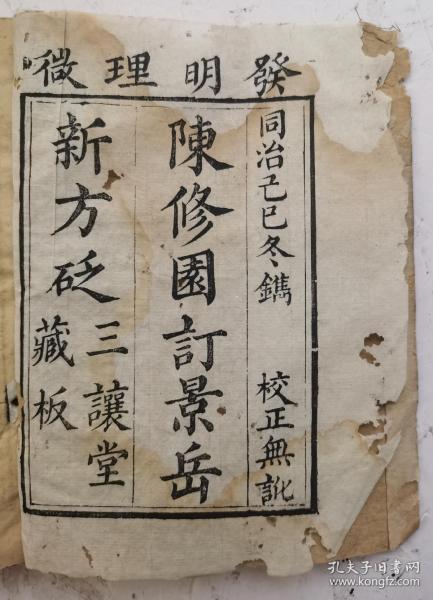 發明理微
同治己巳冬鐫　校正無訛
陳修園訂景岳
新方砭三讓堂
藏板
孔夫子旧书网
www.kongfz.com